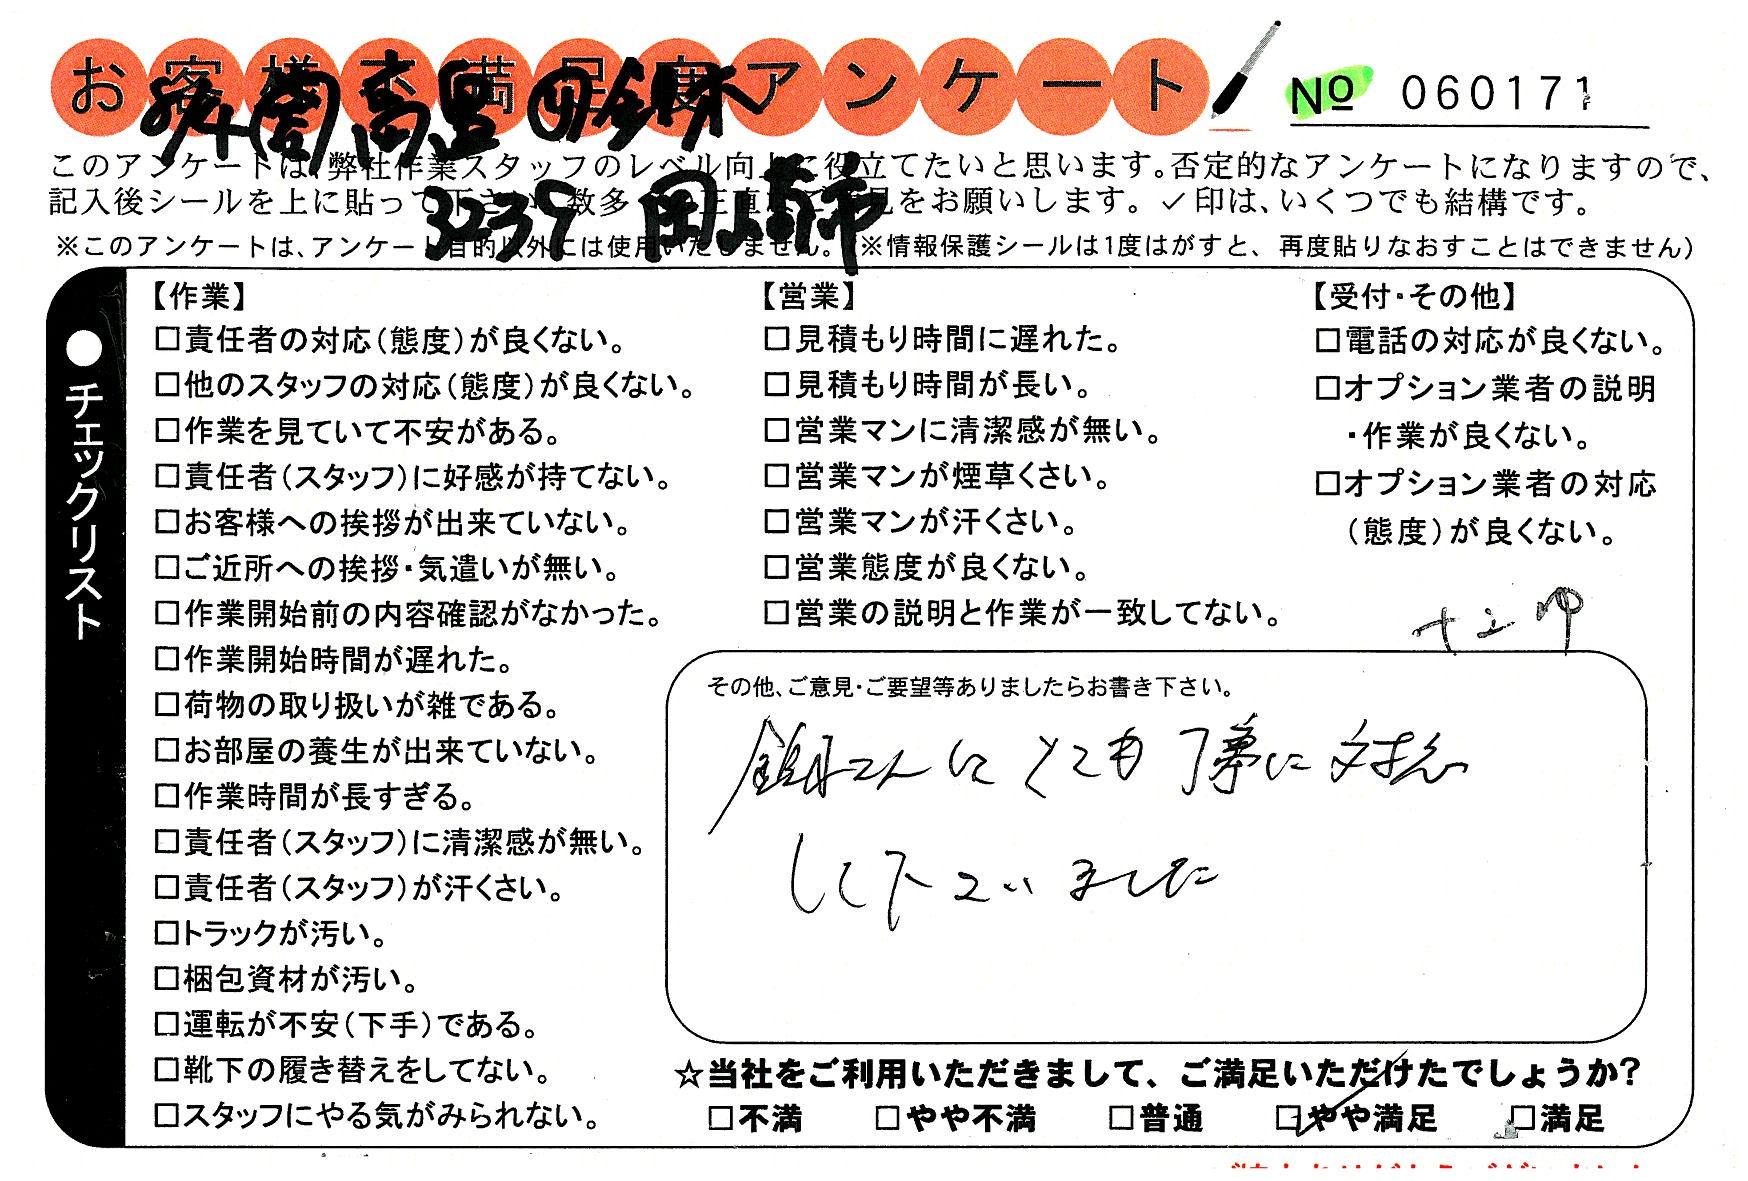 お客様不満足度アンケート
№ 060171
このアンケートは、弊社作業スタッフのレベル向上に役立てたいと思います。否定的なアンケートになりますので、
記入後シールを上に貼って下さい。数多くの正直なご意見をお願いします。✓印は、いくつでも結構です。
※このアンケートは、アンケート目的以外には使用いたしません。(※情報保護シールは1度はがすと、再度貼りなおすことはできません)
高里 鈴木
3239 岡崎市
●チェックリスト
【作業】
□責任者の対応(態度)が良くない。
□他のスタッフの対応(態度)が良くない。
□作業を見ていて不安がある。
□責任者(スタッフ)に好感が持てない。
□お客様への挨拶が出来ていない。
□ご近所への挨拶・気遣いが無い。
□作業開始前の内容確認がなかった。
□作業開始時間が遅れた。
□荷物の取り扱いが雑である。
□お部屋の養生が出来ていない。
□作業時間が長すぎる。
□責任者(スタッフ)に清潔感が無い。
□責任者(スタッフ)が汗くさい。
□トラックが汚い。
□梱包資材が汚い。
□運転が不安(下手)である。
□靴下の履き替えをしてない。
□スタッフにやる気がみられない。
【営業】
□見積もり時間に遅れた。
□見積もり時間が長い。
□営業マンに清潔感が無い。
□営業マンが煙草くさい。
□営業マンが汗くさい。
□営業態度が良くない。
□営業の説明と作業が一致してない。
【受付・その他】
□電話の対応が良くない。
□オプション業者の説明
・作業が良くない。
□オプション業者の対応
(態度)が良くない。
その他、ご意見・ご要望等ありましたらお書き下さい。
さんにとても丁寧に対応
して下さいました
☆当社をご利用いただきまして、ご満足いただけたでしょうか?
□不満 □やや不満 □普通 ☑やや満足 □満足